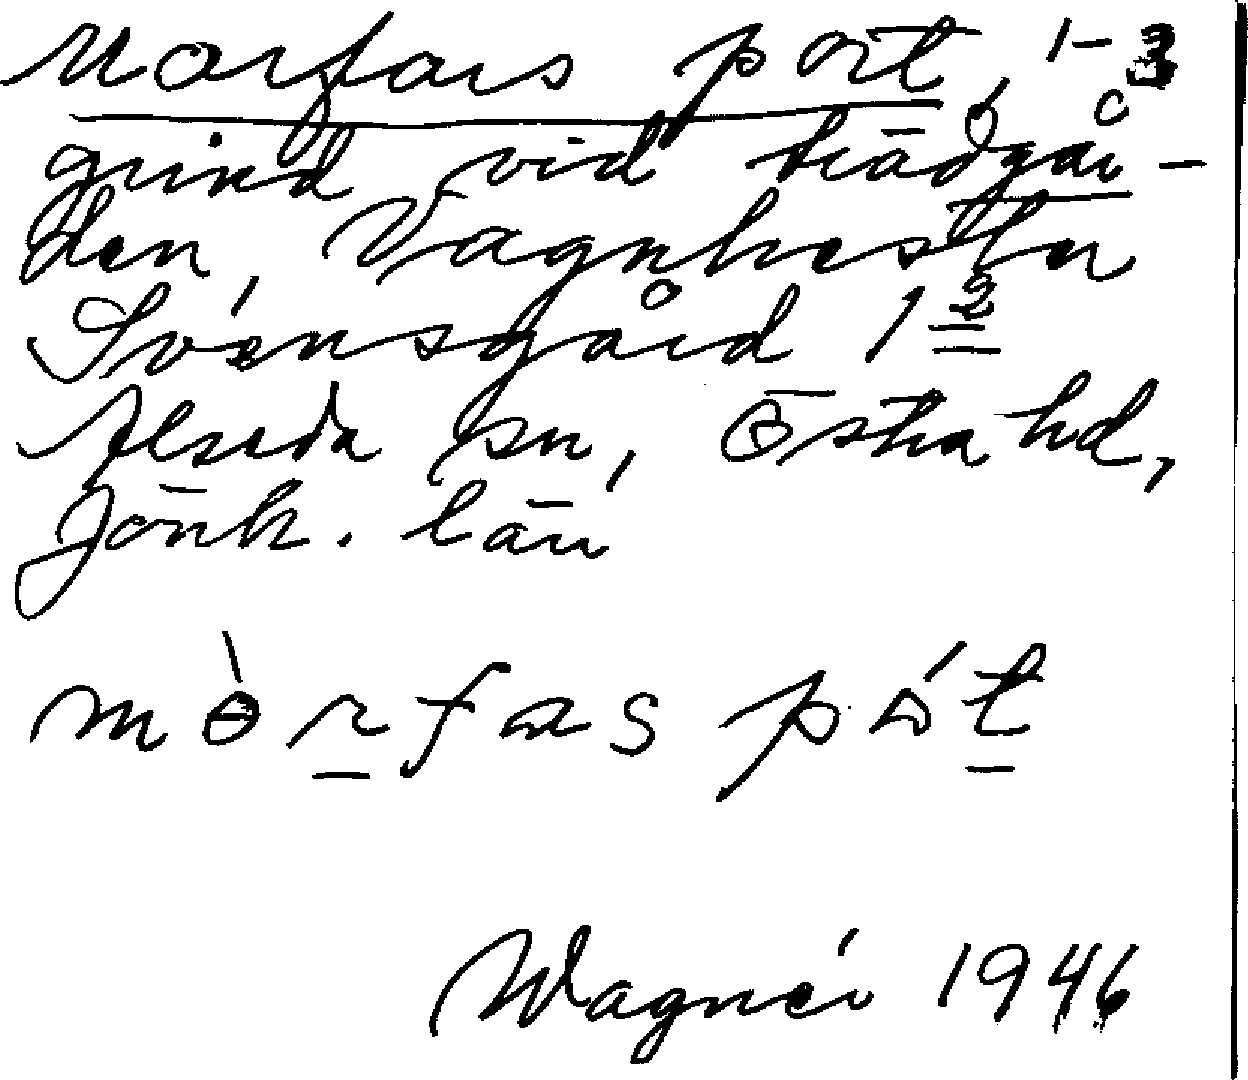 Morfars port, 1-3
grind vid trädgår-
den, Vagnhester
Svensgård 1 2
Alseda sn, Östra hd,
Jönk. län
mòrfas pót
Wagnér 1946